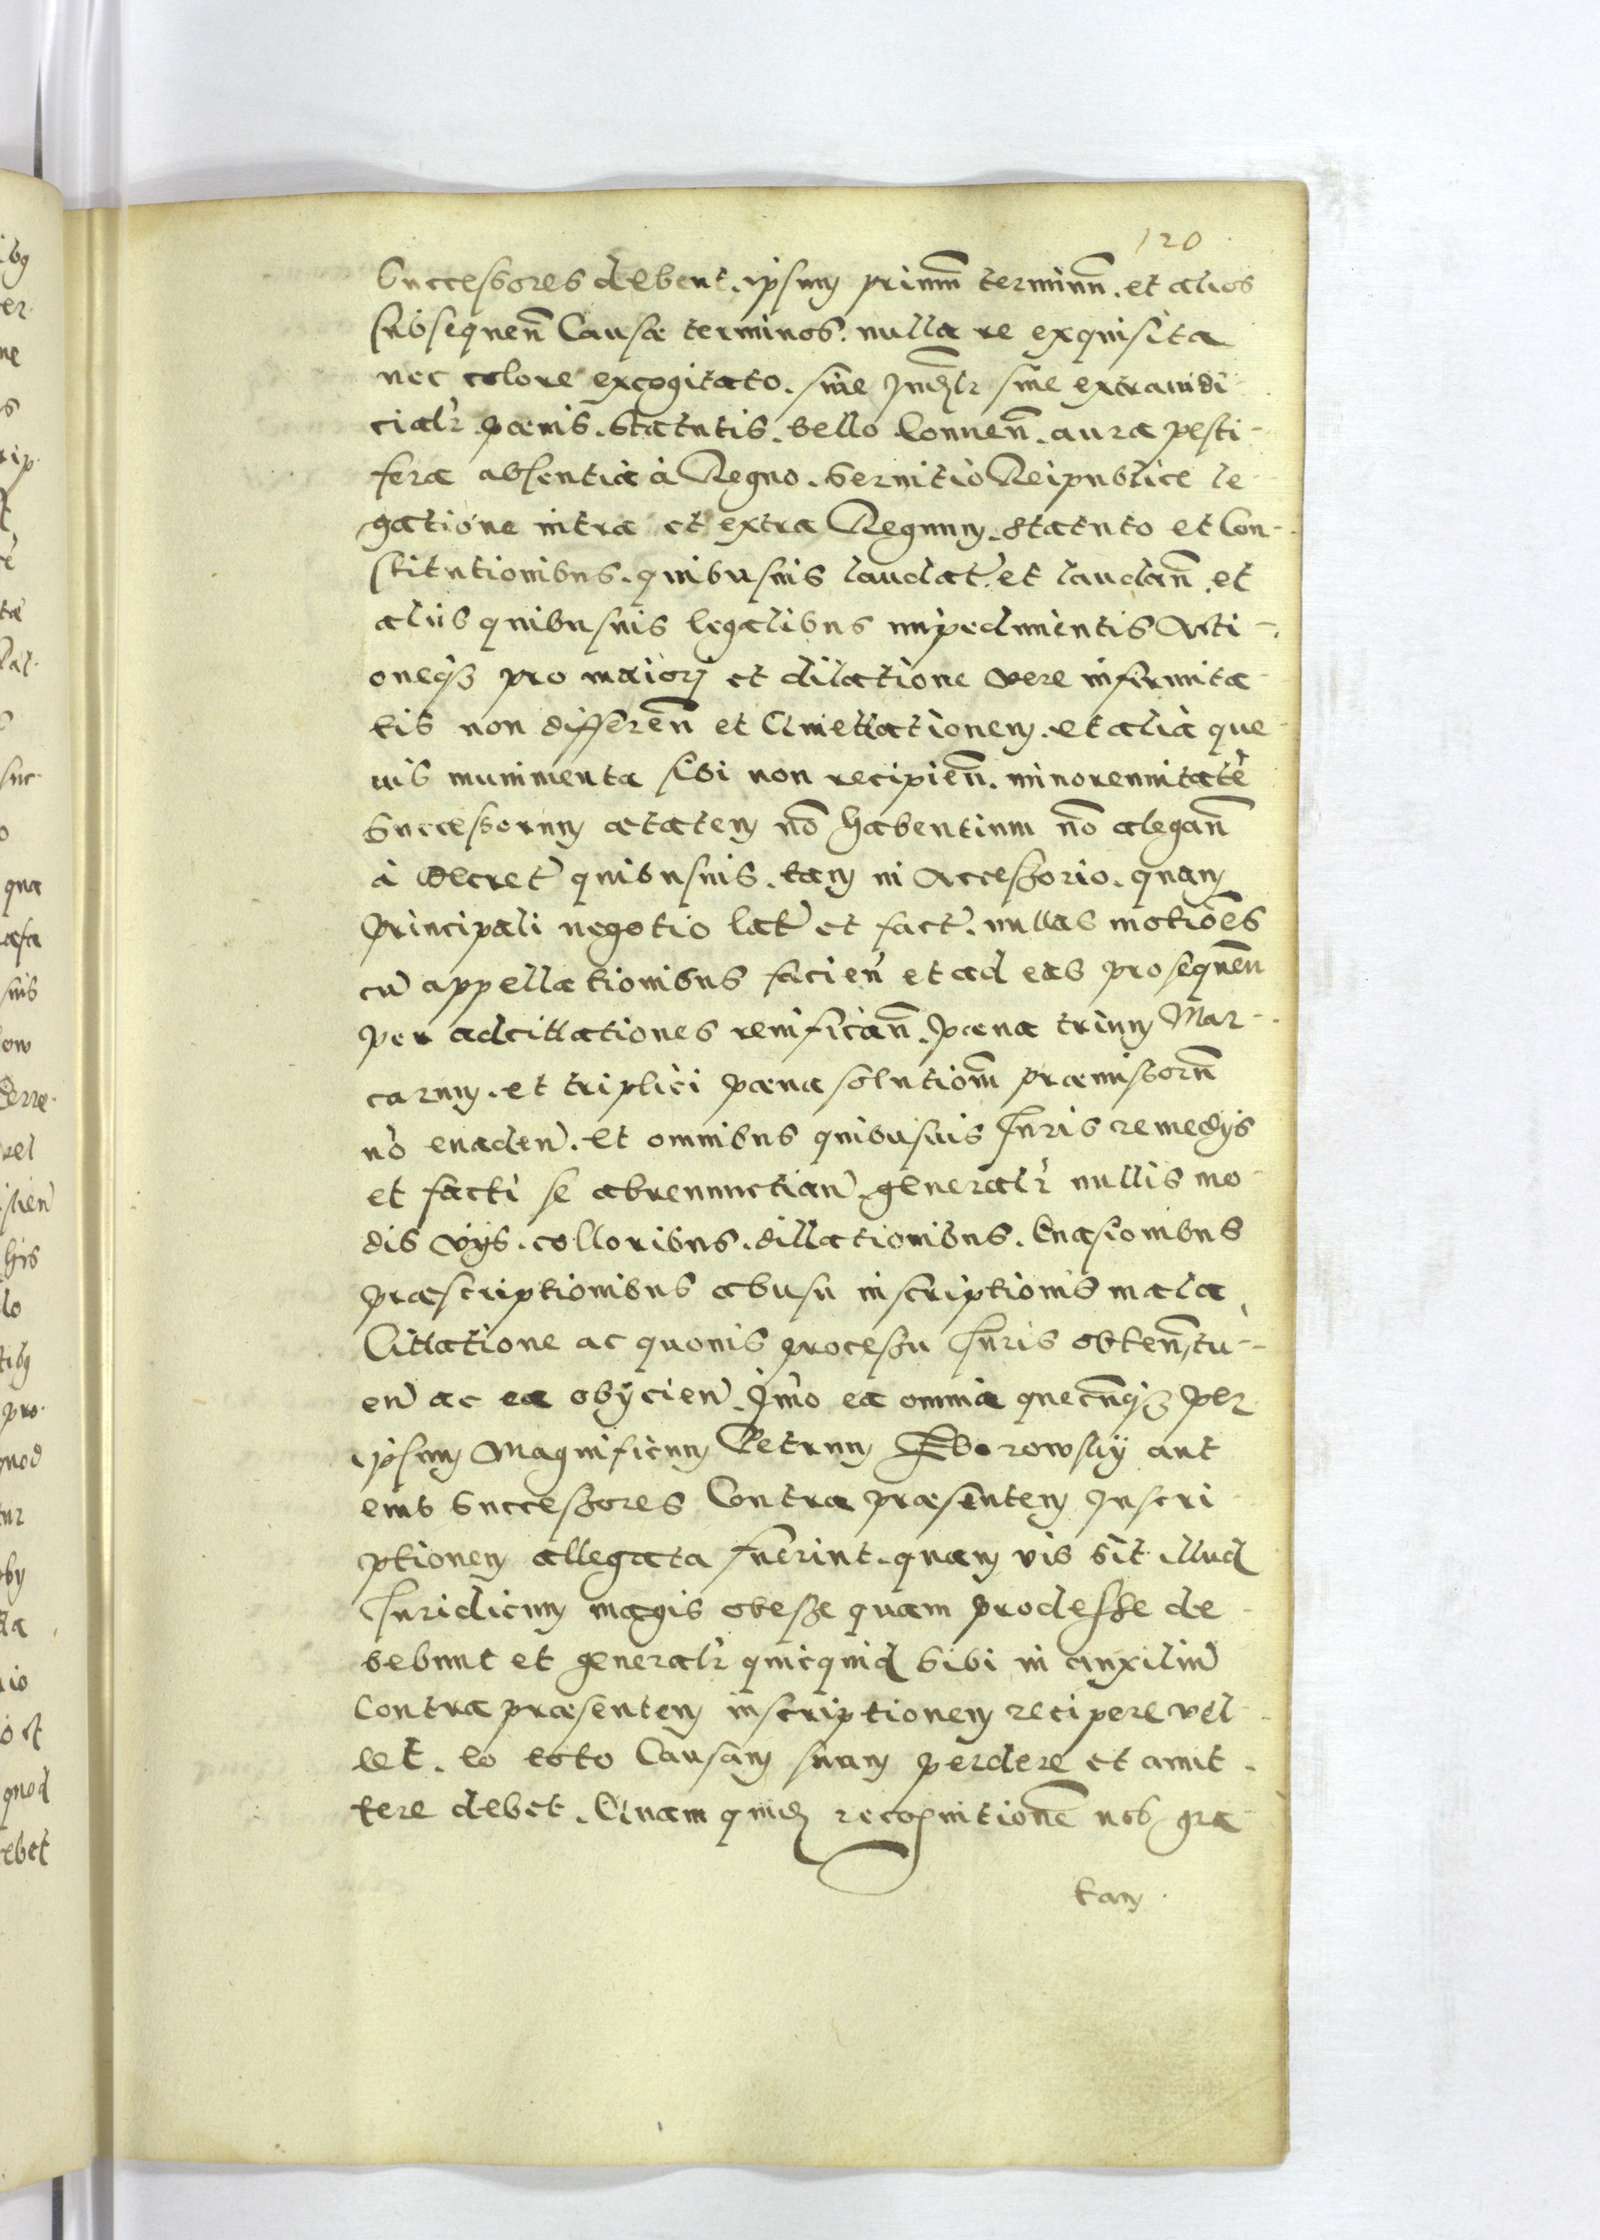 120
Successores debent. ipsum primũ terminũ. et alios
subsequeñ Causæ terminos. nulla re exquisita
nec colore excogitato. siue Judłr siue extraiudi-
cialr. pœnis. Statutis. bello Conueñ. aura pesti-
fera absentia à Regno. Seruitio Reipublice le-
gatione intra et extra Regnum. Statuto et Con-
stitutionibus. quibusuis laudat. et laudañ. et
aliis quibusuis legalibus impedimentis Acti-
oneqз pro maiorj et dilatione vere infirmita-
tis non differeñ et Quiettationem. et alia que-
uis munimenta sibi non recipieñ. minorennitatē
Successorum ætatem nõ habentium nõ alegañ
à decret quibusuis. tam in Accessorio. quam
principali negotio lat et fact. nullas motiões
cũ appellationibus facieñ et ad eas prosequeñ
per adcittationes reificañ. pœna trium Mar-
carum. et triplici pœna solutioñ præmissorũ
nõ euadeñ. et omnibus quibusuis Iuris remedijs
et facti se abrenunctiañ. generalr nullis mo-
dis vijs. colloribus. dillationibus. Euasionibus
præscriptionibus abusu inscriptionis mala
Cittatione ac quouis processu Iuris obteñ, tu-
eñ ac ea obÿcieñ. Jmo ea omnia quecũqз per
ipsum Magnificum Petrum Zborowskÿ aut
eius Successores Contra præsentem Inscri-
ptionem allegata fuerint. quam vis sit illud
Iuridicum magis obesse quam prodesse de-
bebunt et generalr quicquid sibi in auxiliũ
Contra præsentem inscriptionem recipere vel-
let. eo toto Causam suam perdere et amit-
tere debet. Quam quid recognitionẽ nob gra-
tam